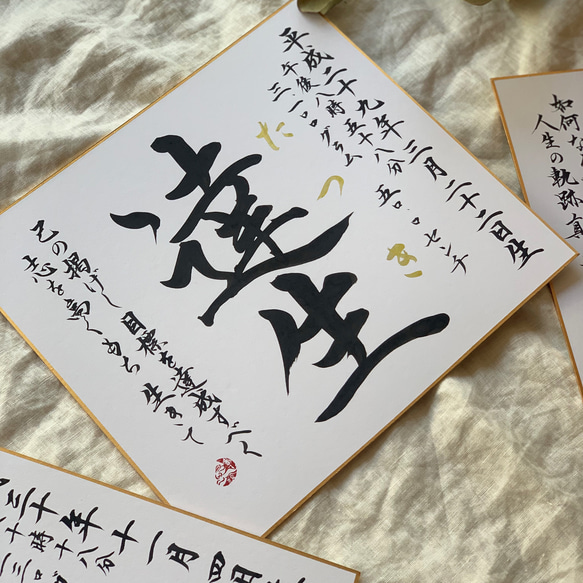 平成二十九年三月二十二日生
午後八時五十八分 五〇.〇センチ
三.一〇〇グラム
たつき
達生
己の掲げし目標を達成すべく
志を高くもち生きて
如何な
人生の軌跡真
三十年十一月四
十時十八分